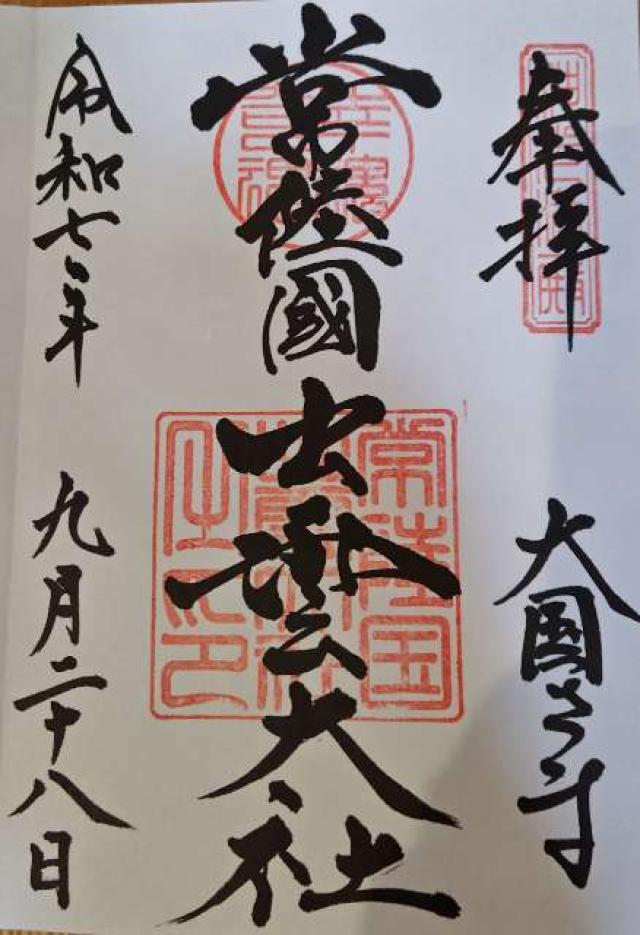 奉拝
大国さま
常陸國出雲大社
常陸国
令和七年
九月二十八日